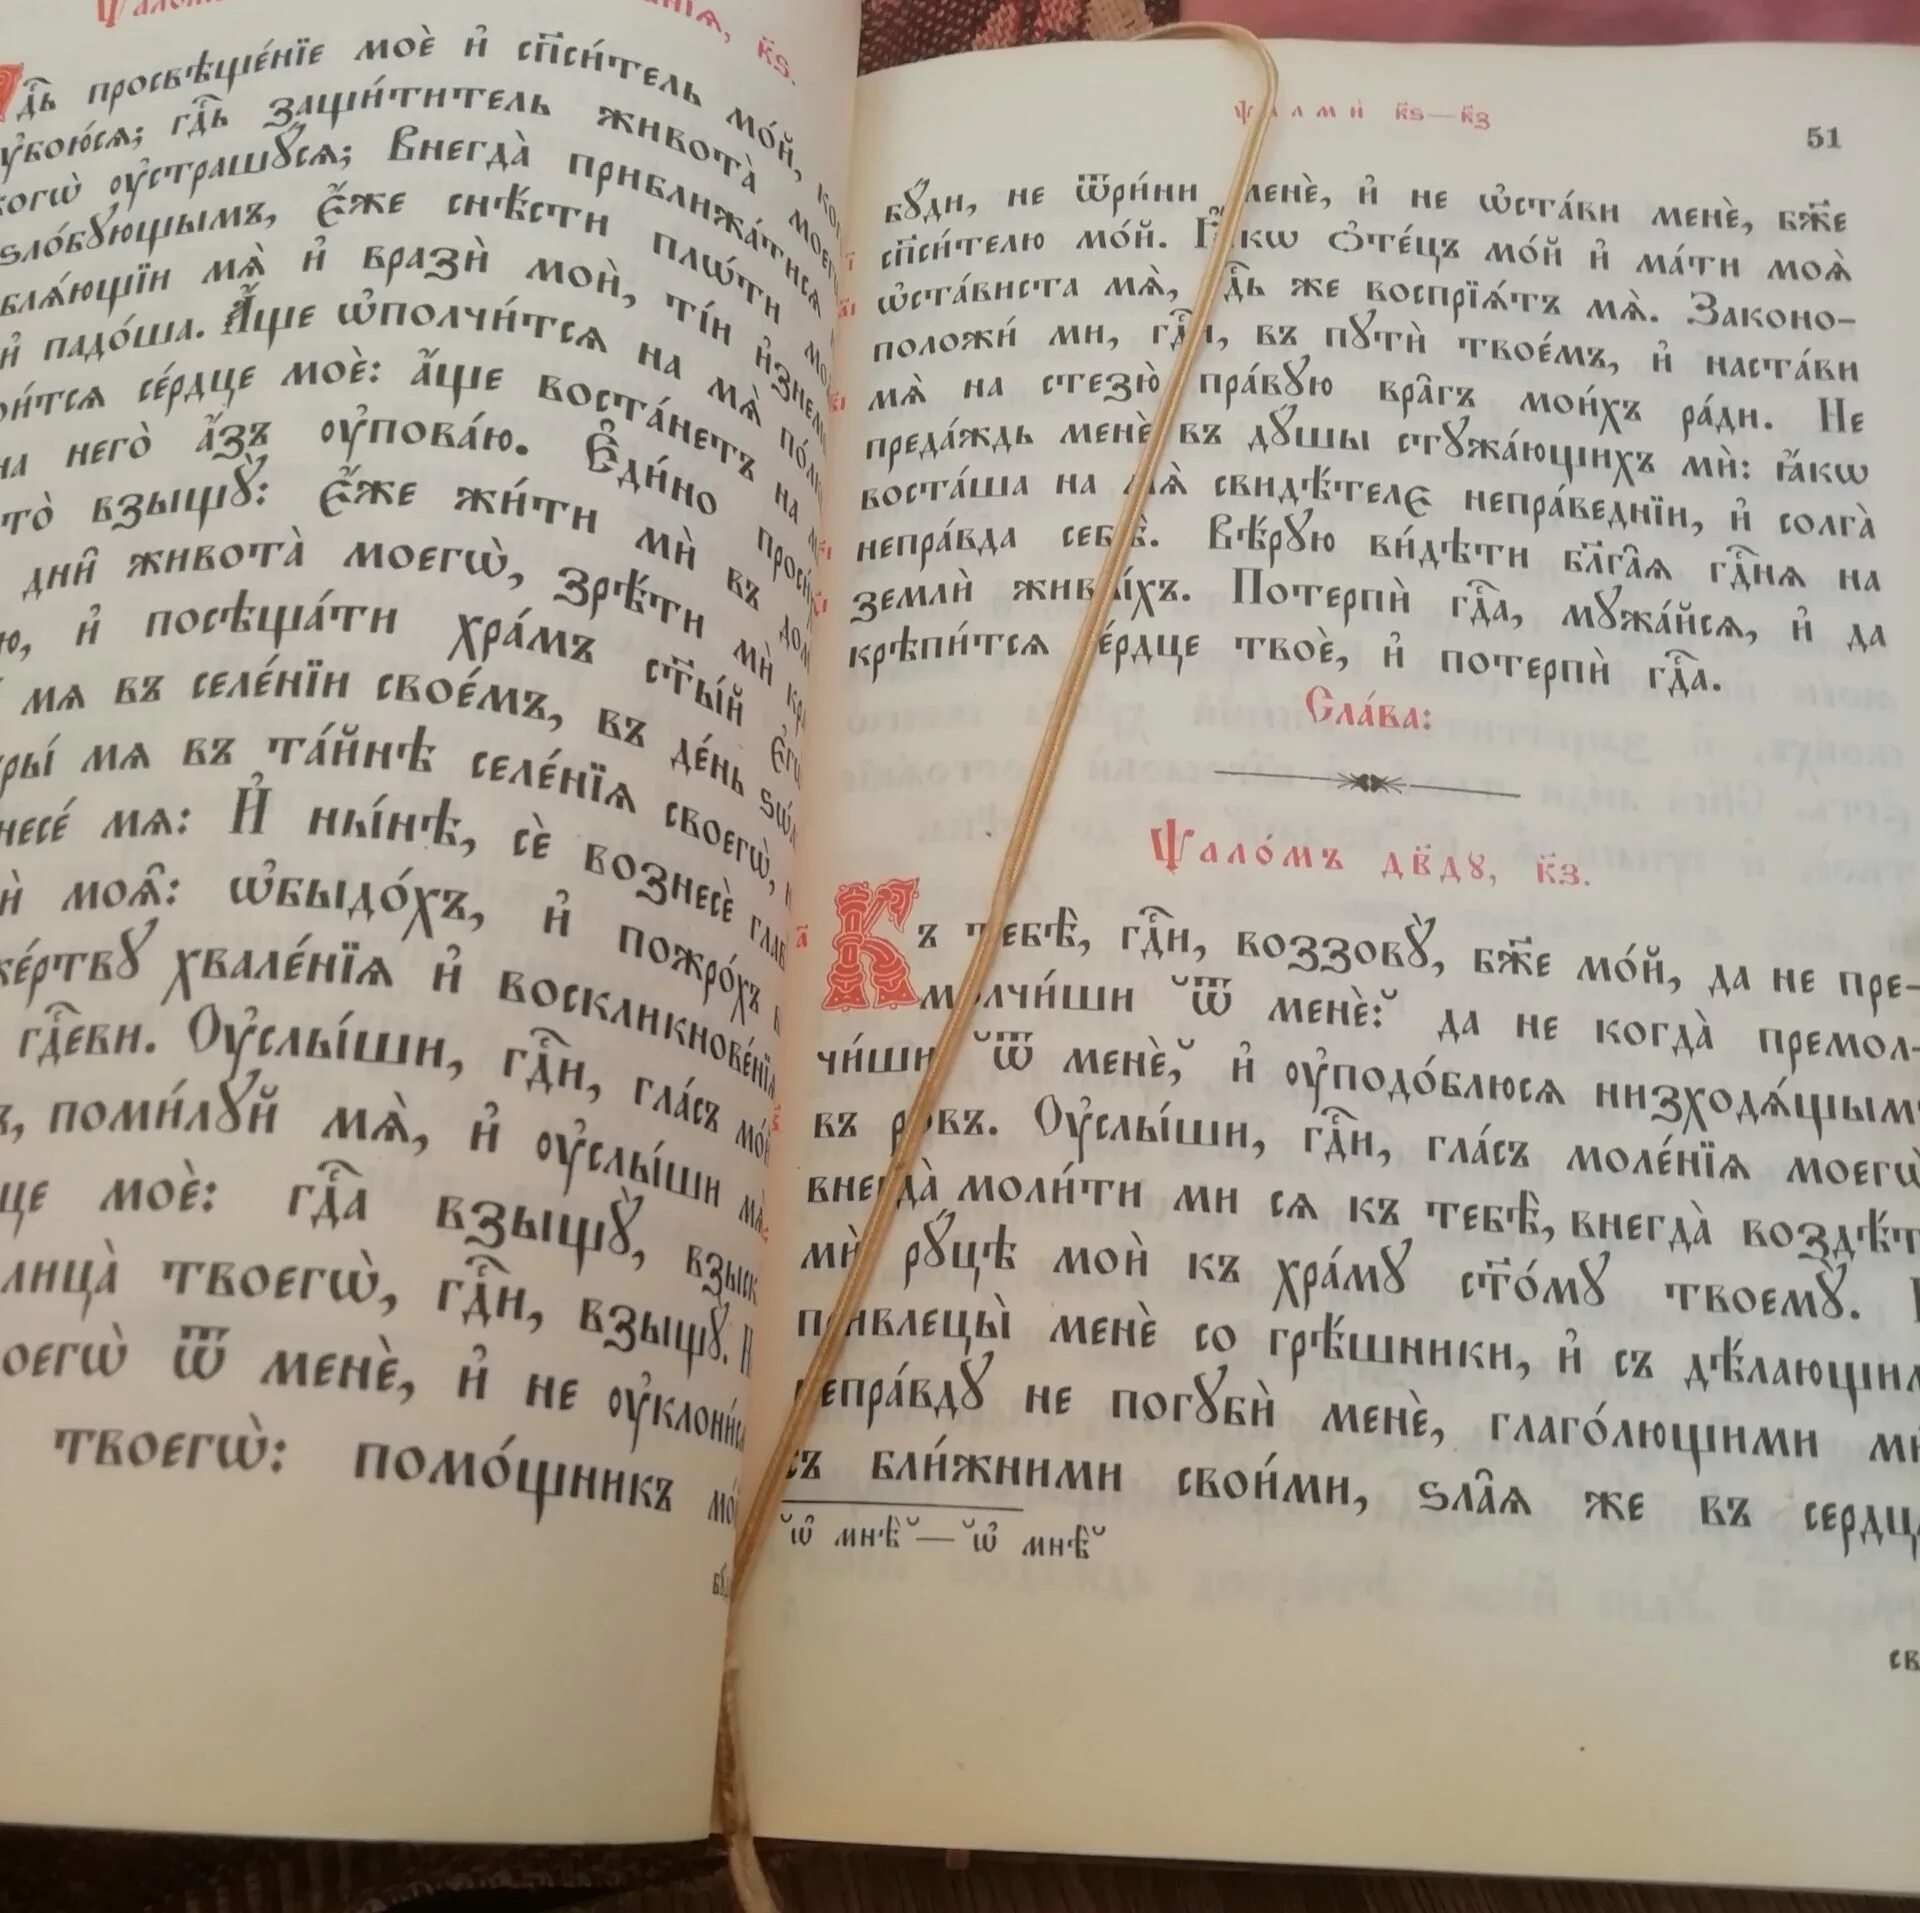 гдⷭ҇ь просвѣще́нїе моѐ и҆ сп҃си́тель мо́й,
ᲂу҆бою́сѧ; гдⷭ҇ь защи́титель живота̀
когѡ̀ ᲂу҆страшꙋ́сѧ; Внегда̀ приближа́тисѧ
ѕло́бꙋющымъ, є҆́же снѣ́сти плѡ́ти
и҆ вразѝ мои̑, ті́и
и҆ падо́ша. А҆́ще ѡ҆полчи́тсѧ на мѧ̀
се́рдце моѐ: а҆́ще воста́нетъ на
на него̀ а҆́зъ ᲂу҆пова́ю. Є҆ди́но
то̀ взыщꙋ̀: є҆́же жи́ти мѝ въ
дни̑ живота̀ моегѡ̀, зрѣ́ти мѝ
и҆ посѣща́ти хра́мъ ст҃ы́й
мѧ въ селе́нїи свое́мъ, въ де́нь
мѧ въ та́йнѣ селе́нїѧ своегѡ̀,
мѧ: И҆ ны́нѣ, сѐ вознесѐ
моѧ̑: ѡ҆быдо́хъ, и҆ пожро́хъ
хвале́нїѧ и҆
гдⷭ҇еви. Оу҆слы́ши, гдⷭ҇и, гла́съ
поми́лꙋй мѧ̀, и҆ ᲂу҆слы́ши мѧ̀.
моѐ: гдⷭ҇а взыщꙋ̀,
лица̀ твоегѡ̀, гдⷭ҇и, взыщꙋ̀.
ѿ менє̀, и҆ не
твоегѡ̀: помо́щникъ
Ѱалмы̀ к҃ѕ—к҃з
51
бꙋ́ди, не ѿри́ни менѐ, и҆ не ѡ҆ста́ви менѐ, бж҃е
сп҃си́телю мо́й. Ꙗ҆́кѡ ѻ҆те́цъ мо́й и҆ ма́ти моѧ̀
ѡ҆ста́виста мѧ̀, гдⷭ҇ь же воспрїѧ́тъ мѧ̀. Законо-
положи́ ми, гдⷭ҇и, въ пꙋтѝ твое́мъ, и҆ наста́ви
мѧ̀ на стезю̀ пра́вꙋю вра̑гъ мои́хъ ра́ди. Не
преда́ждь менѐ въ дꙋ́шы стꙋжа́ющихъ мѝ: ꙗ҆́кѡ
воста́ша на мѧ̀ свидѣ́телє непра́веднїи, и҆ солга̀
непра́вда себѣ̀. Вѣ́рꙋю ви́дѣти бл҃га̑ѧ гдⷭ҇нѧ на
землѝ живы́хъ. Потерпѝ гдⷭ҇а, мꙋжа́йсѧ, и҆ да
крѣпи́тсѧ се́рдце твоѐ, и҆ потерпѝ гдⷭ҇а.
Сла́ва:
Ѱало́мъ дв҃дꙋ, к҃з.
а҃ Къ тебѣ̀, гдⷭ҇и, воззовꙋ̀, бж҃е мо́й, да не пре-
молчи́ши ѿ менє̀: да не когда̀ премол-
чи́ши ѿ менє̀, и҆ ᲂу҆подо́блюсѧ низходѧ́щымъ
въ ро́въ. Оу҆слы́ши, гдⷭ҇и, гла́съ моле́нїѧ моегѡ̀
внегда̀ моли́ти ми сѧ къ тебѣ̀, внегда̀ воздѣ́т
мѝ рꙋ́цѣ моѝ къ хра́мꙋ ст҃о́мꙋ твоемꙋ̀.
привлецы̀ менѐ со грѣ́шники, и҆ съ дѣ́лающим
непра́вдꙋ не погꙋбѝ менѐ, глаго́лющими ми
съ бли́жними свои́ми, ѕла̑ѧ же въ сердц
ѡ҆ мнѣ̀ — ѡ҆ мнѣ̀
св